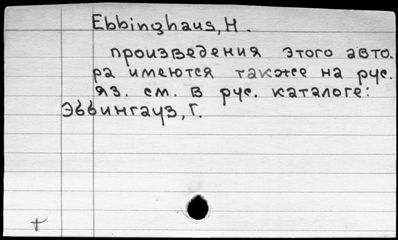 Ebbinghaus, H.
произведения этого авто-
ра имеются также на рус.
яз. см. в рус. каталоге:
Эббингауз, Г.
+